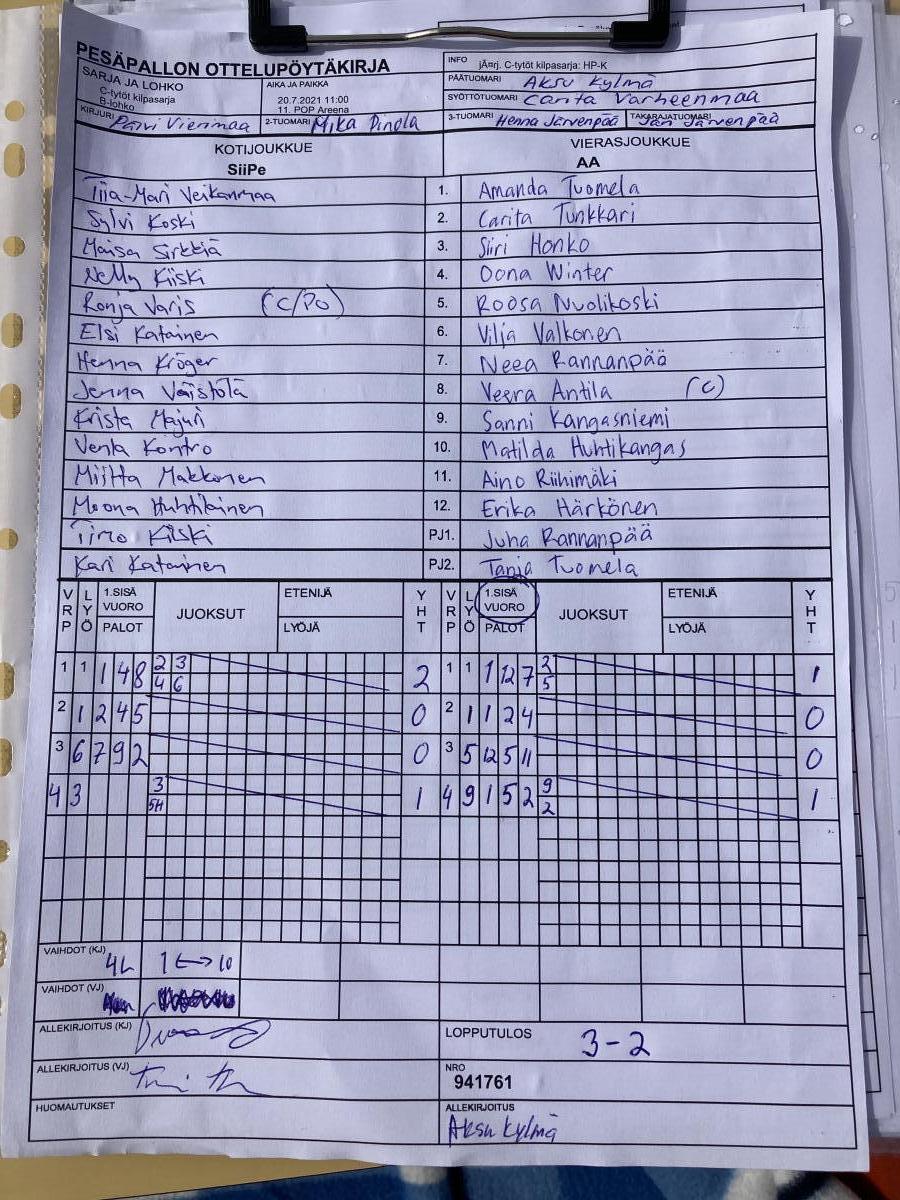 PESÄPALLON OTTELUPÖYTÄKIRJA
INFO jÃ¤rj. C-tytöt kilpasarja: HP-K
SARJA JA LOHKO
C-tytöt kilpasarja
B-lohko
AIKA JA PAIKKA
20.7.2021 11:00
11. POP Areena
PÄÄTUOMARI Aksu Kylmä
SYÖTTÖTUOMARI Carita Varheenmaa
KIRJURI Päivi Vierimaa 2-TUOMARI Mika Dinola 3-TUOMARI Henna Järvenpää TAKARAJATUOMARI Jari Järvenpää
KOTIJOUKKUE VIERASJOUKKUE
SiiPe AA
Tiia-Mari Veikanmaa 1. Amanda Tuomela
Sylvi Koski 2. Carita Tunkkari
Maisa Sirkkiä 3. Siiri Honko
Nelly Kiiski 4. Oona Winter
Ronja Varis (C/PO) 5. Roosa Nuolikoski
Elsi Katainen 6. Vilja Valkonen
Henna Kröger 7. Neea Rannanpää
Jenna Väistölä 8. Veera Antila (C)
Krista Majuri 9. Sanni Kangasniemi
Venla Kontro 10. Matilda Huhtikangas
Miitta Makkonen 11. Aino Riihimäki
Moona Huhtikainen 12. Erika Härkönen
Timo Kiiski PJ1. Juha Rannanpää
Kari Katainen PJ2. Tanja Tuomela
VRP LYÖ 1.SISÄ VUORO PALOT JUOKSUT ETENIJÄ LYÖJÄ YHT VRP LYÖ 1.SISÄ VUORO PALOT JUOKSUT ETENIJÄ LYÖJÄ YHT
1 1 1 4 8 2 3 2 1 1 1 12 7 2 1
4 6 5
2 1 2 4 5 0 2 1 1 2 4 0
3 6 7 9 2 0 3 5 12 5 11 0
4 3 3 1 4 9 1 5 2 9 1
5H 2
VAIHDOT (KJ) 4L 1 <-> 10
VAIHDOT (VJ)
ALLEKIRJOITUS (KJ) LOPPUTULOS 3-2
ALLEKIRJOITUS (VJ) NRO
941761
HUOMAUTUKSET ALLEKIRJOITUS
Aksu Kylmä